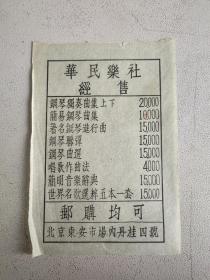 華民樂社
經售
鋼琴獨奏曲集上下 20,000
簡易鋼琴曲集 10,000
著名鋼琴進行曲 15,000
鋼琴聯彈 15,000
鋼琴曲選 15,000
唱歌作曲法 4,000
簡明音樂辭典 15,000
世界名歌選粹五本一套 15,000
郵購均可
北京東安市場內丹桂四號